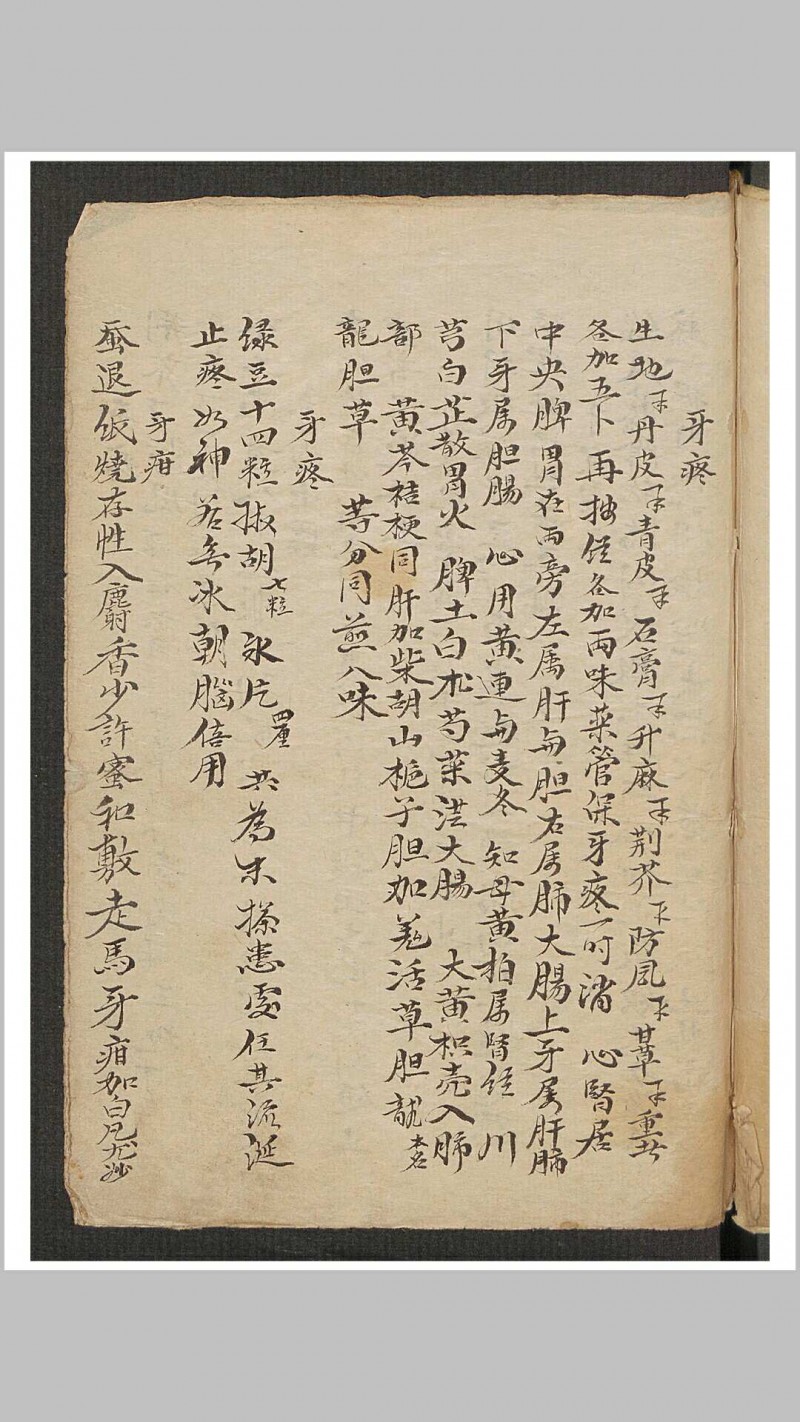 牙疼
生地 丹皮 青皮 石膏 升麻 荆芥 防風 甘草 重者
各加五卜 再按経各加两味藥管保牙疼一时消 心腎居
中央脾胃在两旁左属肝与胆右属肺大腸上牙属肝肺
下牙属胆腸 心用黄連与麦冬 知母黄柏属腎経 川
芎白芷散胃火 脾土白朮芍藥 大腸 大黄枳壳入肺
部 黄芩桔梗同肝加柴胡山梔子胆加羌活草胆龍
龍胆草 等分同煎八味
牙疼
绿豆十四粒椒胡七粒 氷片四厘 共為末搽患處任其流涎
止疼如神 若无冰朝腦倍用
牙疳
蚕退紙燒存性入麝香少許蜜和敷走馬牙疳加白凡尤妙